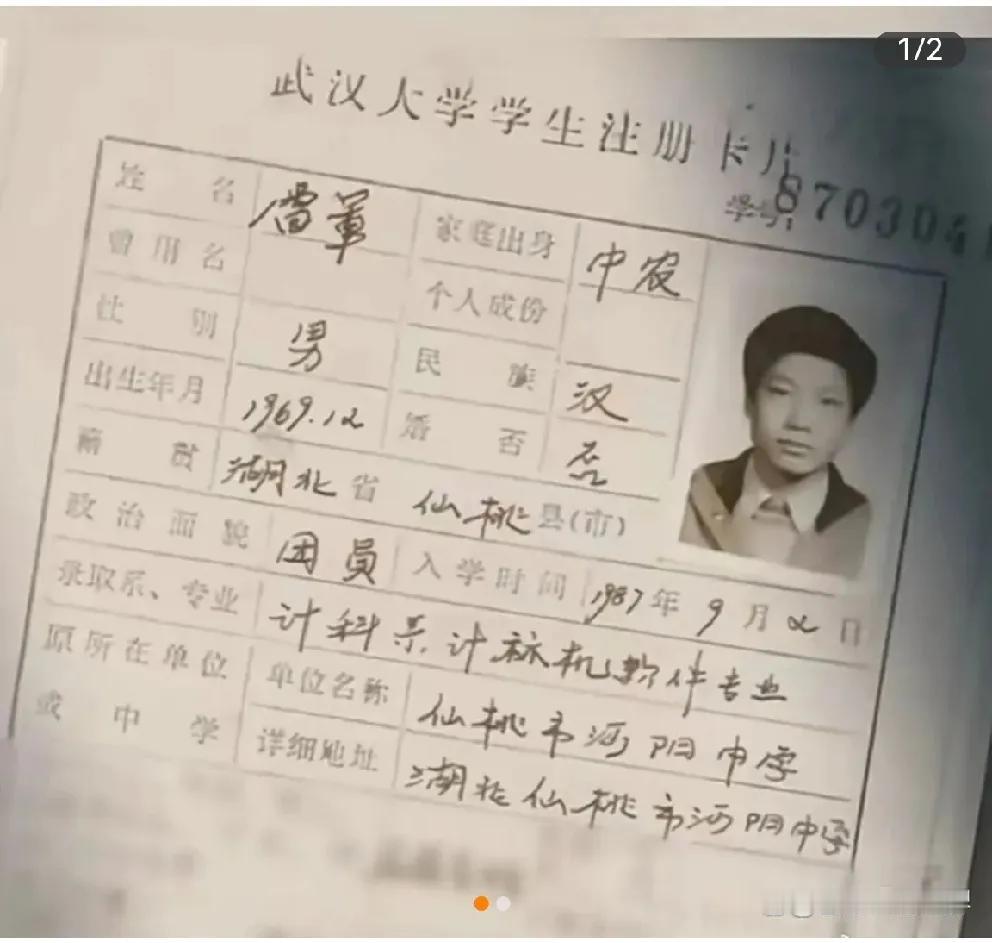 1/2
武汉大学学生注册卡片
学号: 870304
姓名 雷军 家庭出身 中农
曾用名 个人成份
性别 男 民族 汉
出生年月 1969.12 婚否 否
籍贯 湖北省仙桃县(市)
政治面貌 团员 入学时间 1987年9月2日
录取系、专业 计科系计标机软件专业
原所在单位或中学 单位名称 仙桃市沔阳中学
详细地址 湖北仙桃市沔阳中学